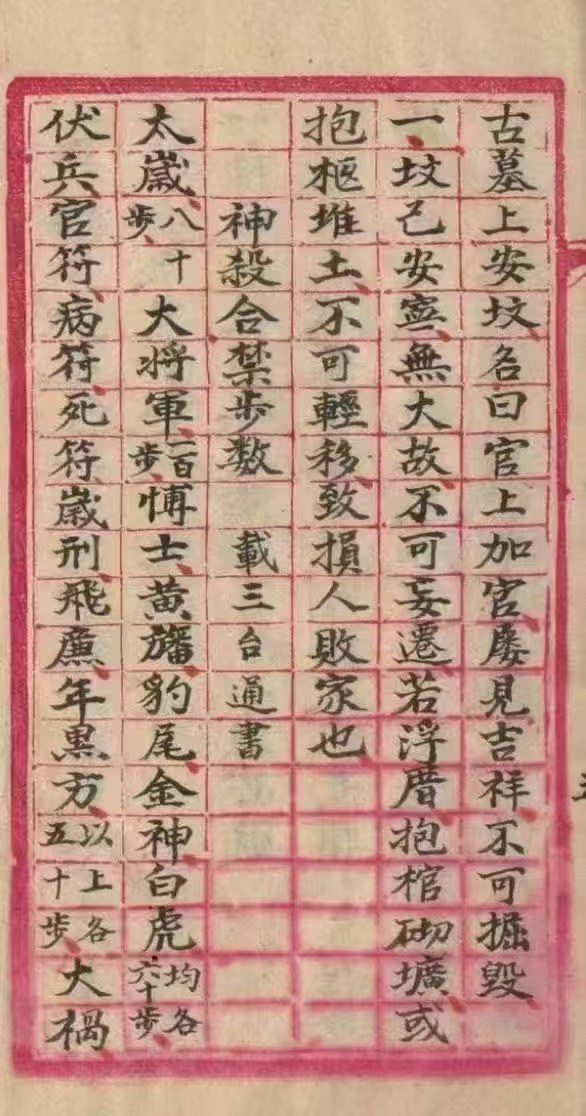 古墓上安坟名曰官上加官屡見吉祥不可掘毀
一坟已安寧無大故不可妄遷若浮厝抱棺砌壙或
抱柩堆土不可輕移致損人敗家也
神殺合禁步数 載三台通書
太歲八十步大將軍一百步博士黃旛豹尾金神白虎均各六十步
伏兵官符病符死符歲刑飛廉年黑方以上各五十步大禍